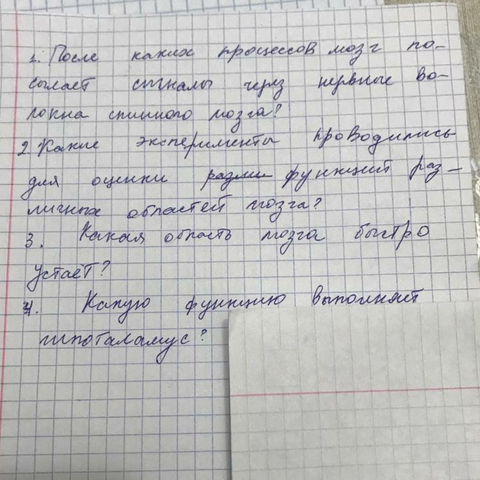 1. После каких процессов мозг по-
сылает сигналы через нервные во-
локна спинного мозга?
2. Какие эксперименты проводились
для оценки разли функций раз-
личных областей мозга?
3. Какая область мозга быстро
устаёт?
4. Какую функцию выполняет
гипоталамус?